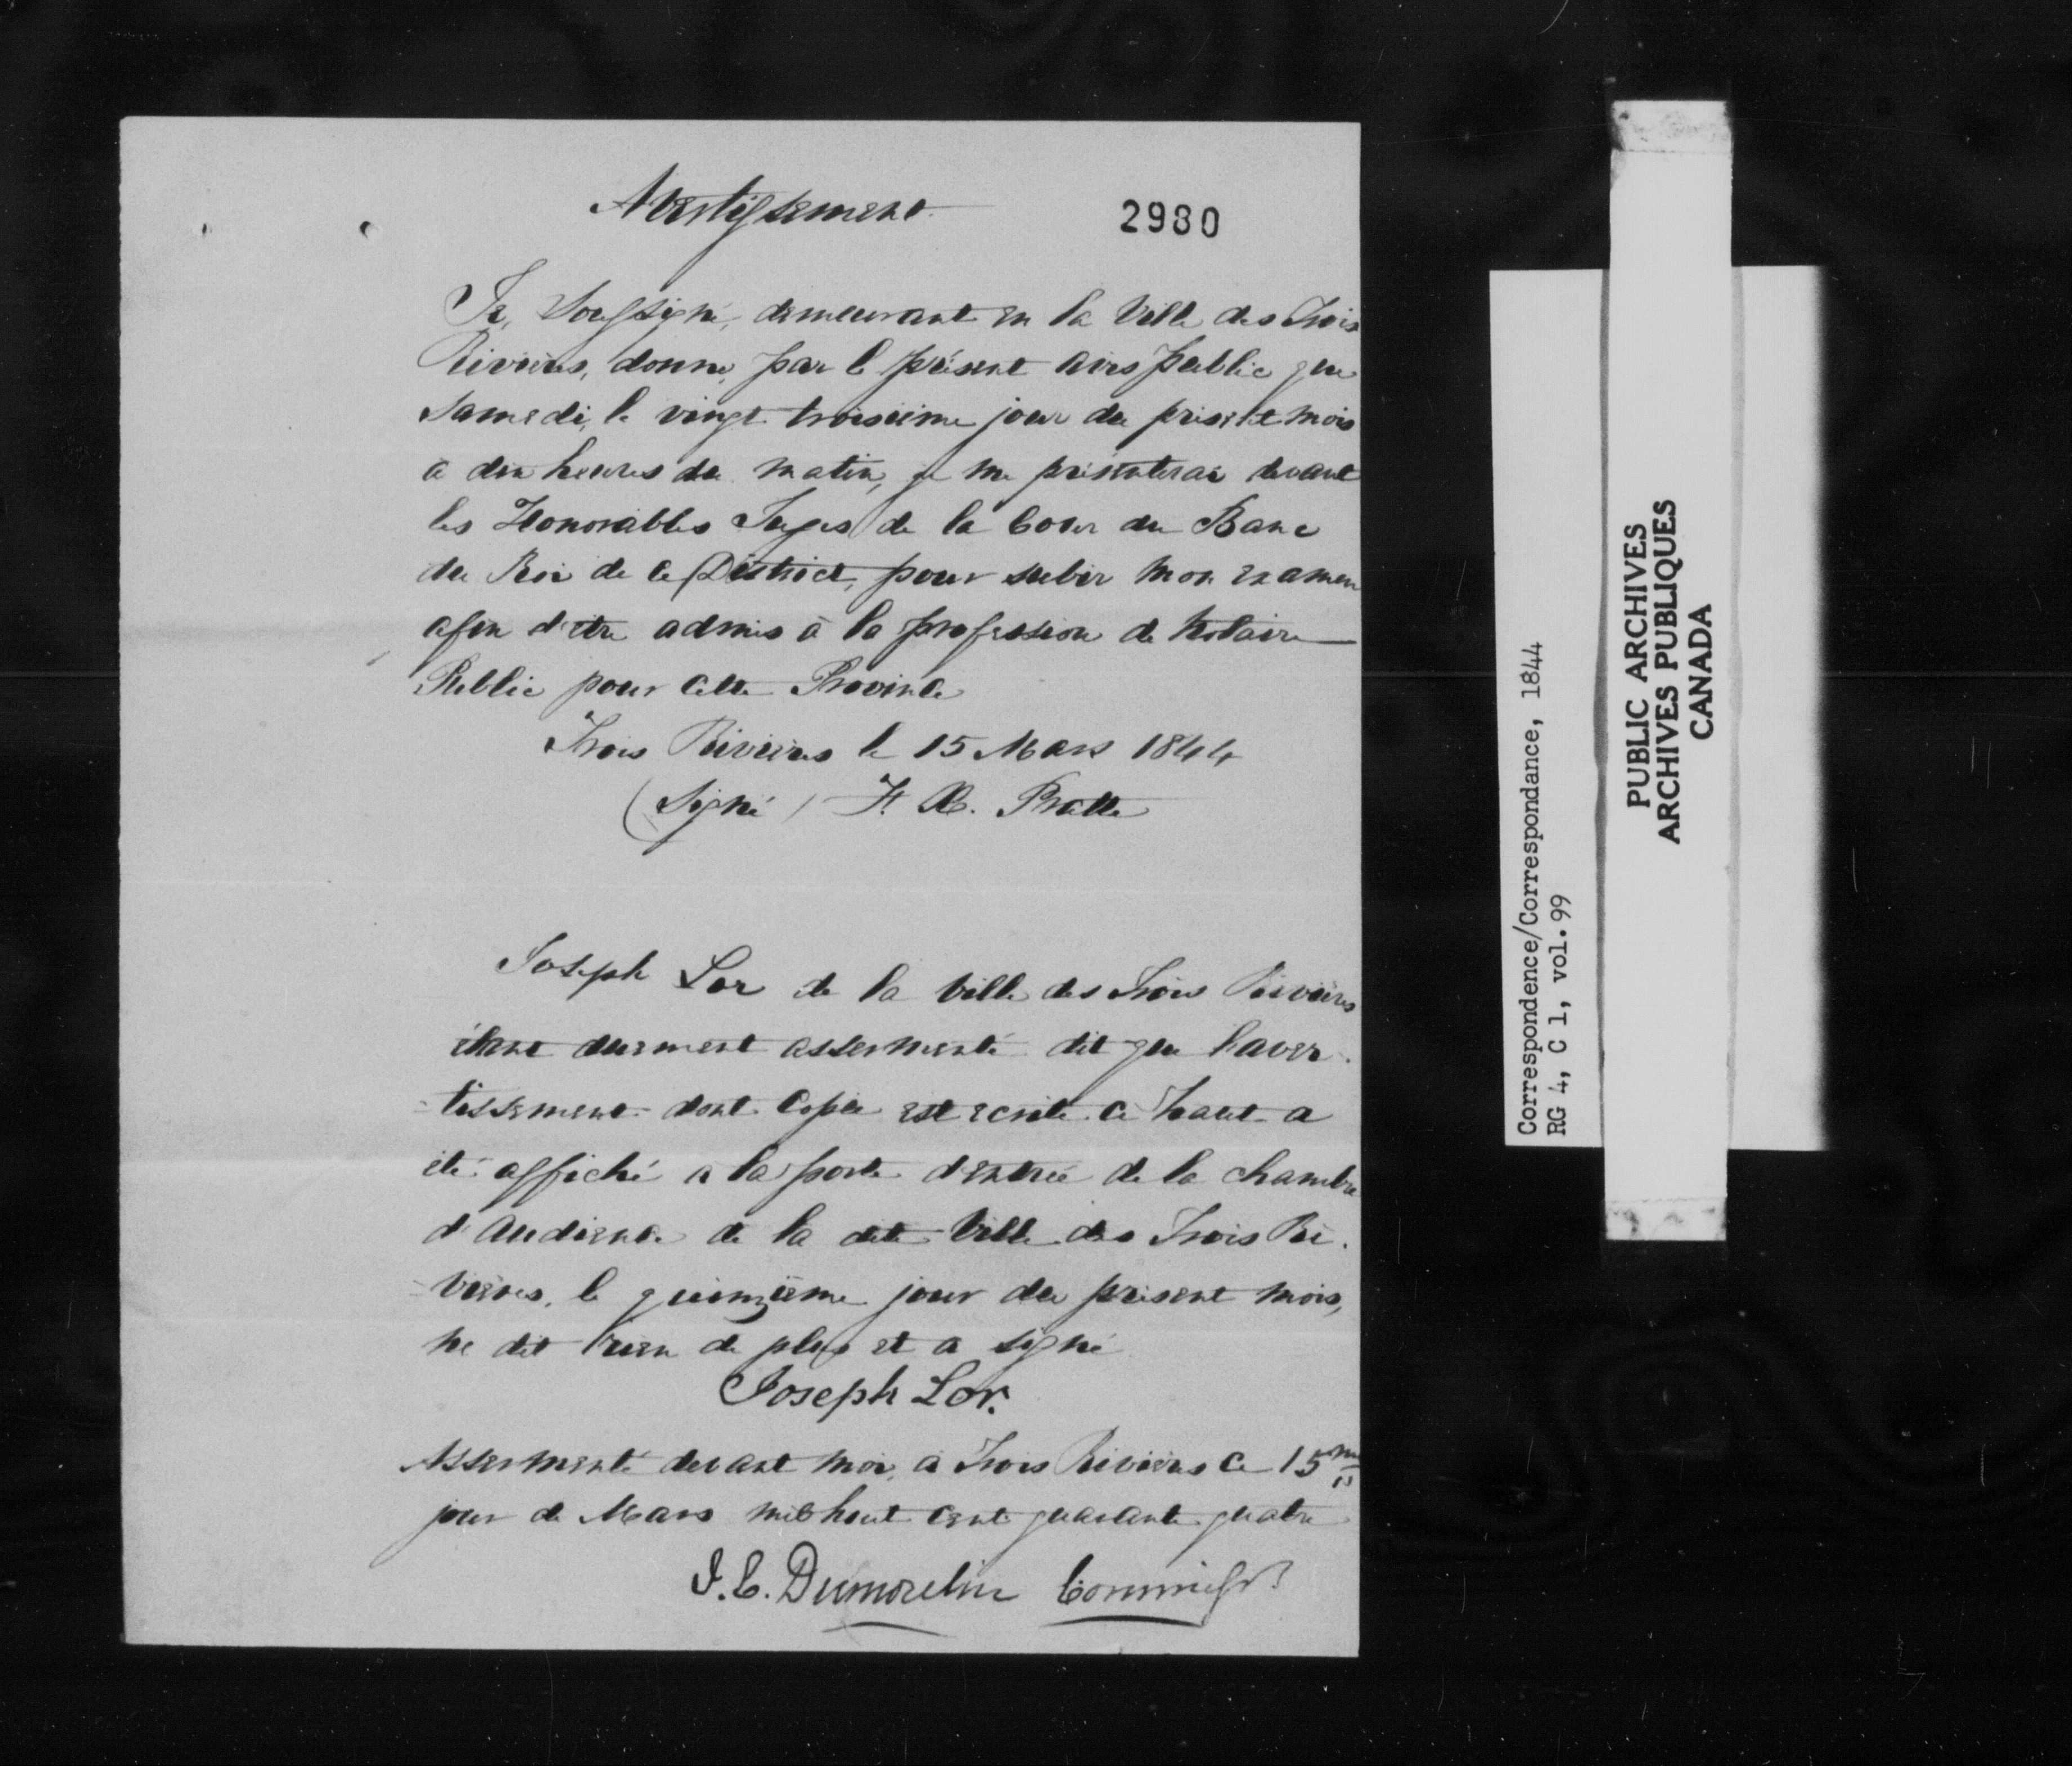 Avertissement
2980
Je, Soussigné, demeurant en la Ville des Trois
Rivières, donne, par le présent avis public que
Samedi, le vingt troisième jour du présent mois
à dix heures du matin, je me présenterai devant
les Honorables Juges de la Cour du Banc
du Roi de ce District, pour subir mon examen
afin d'être admis à la profession de Notaire
Public pour cette Province
Trois Rivières le 15 Mars 1844
(Signé) F. X. Pratte
Joseph Lor de la Ville des Trois Rivières
étant duement assermenté dit que l'aver-
-tissement dont copie est écrite ci haut a
été affiché à la porte d'entrée de la chambre
d'Audience de la dite Ville des Trois Ri-
-vières, le quinzième jour du présent mois,
ne dit rien de plus et a signé
Joseph Lor.
Assermenté devant moi, à Trois Rivières ce 15me
jour de Mars mil huit cent quarante quatre
Dumoulin Commissr
Correspondence/Correspondance, 1844
RG 4, C 1, vol. 99
PUBLIC ARCHIVES
ARCHIVES PUBLIQUES
CANADA